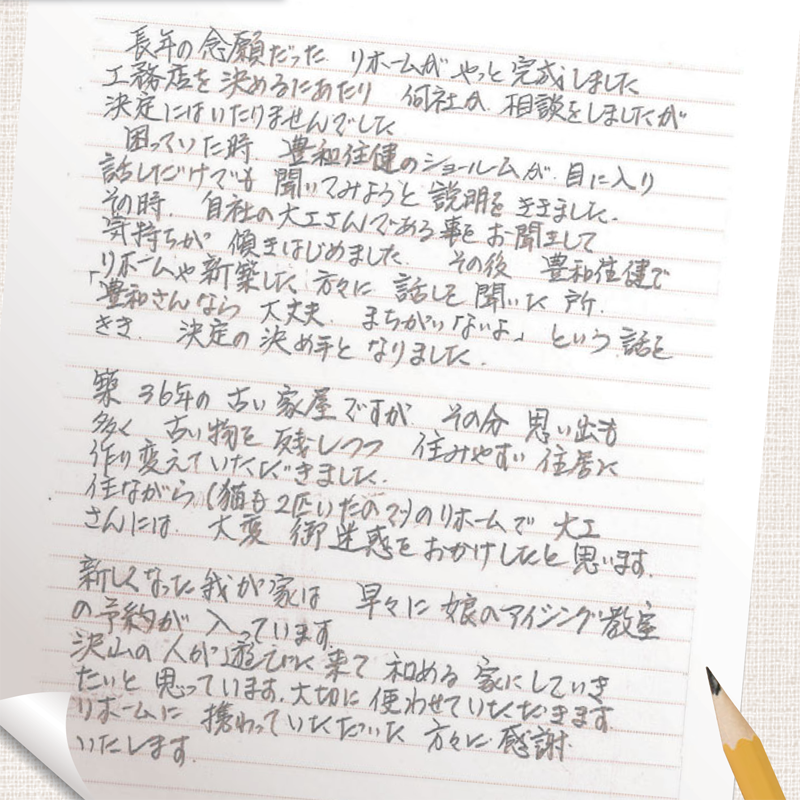 長年の念願だった リホームが やっと完成しました
工務店を決めるにあたり 何社か 相談をしましたが
決定にはいたりませんでした
困っていた時、豊和住健のショールームが、目に入り
話しだけでも 聞いてみようと 説明を ききました。
その時、自社の大工さんである事を お聞きして
気持ちが 傾きはじめました。 その後 豊和住健で
リホームや新築した 方々に 話しを 聞いた所、
「豊和さんなら 大丈夫、まちがいないよ」 という 話を
きき、 決定の決め手と なりました。
築 36年の 古い 家屋ですが、その分 思い出も
多く 古い物を 残しつつ 住みやすい 住居に
作り変えていただきました。
住ながら (猫も2匹いたので)のリホームで 大工
さんには、 大変 御迷惑を おかけしたと 思います。
新しくなった 我が家は 早々に 娘のアイシング教室
の予約が 入っています。
沢山の 人が 遊びに 来て 和める 家にしていき
たいと 思っています。大切に 使わせていただきます。
リホームに 携わっていただいた 方々に 感謝
いたします。